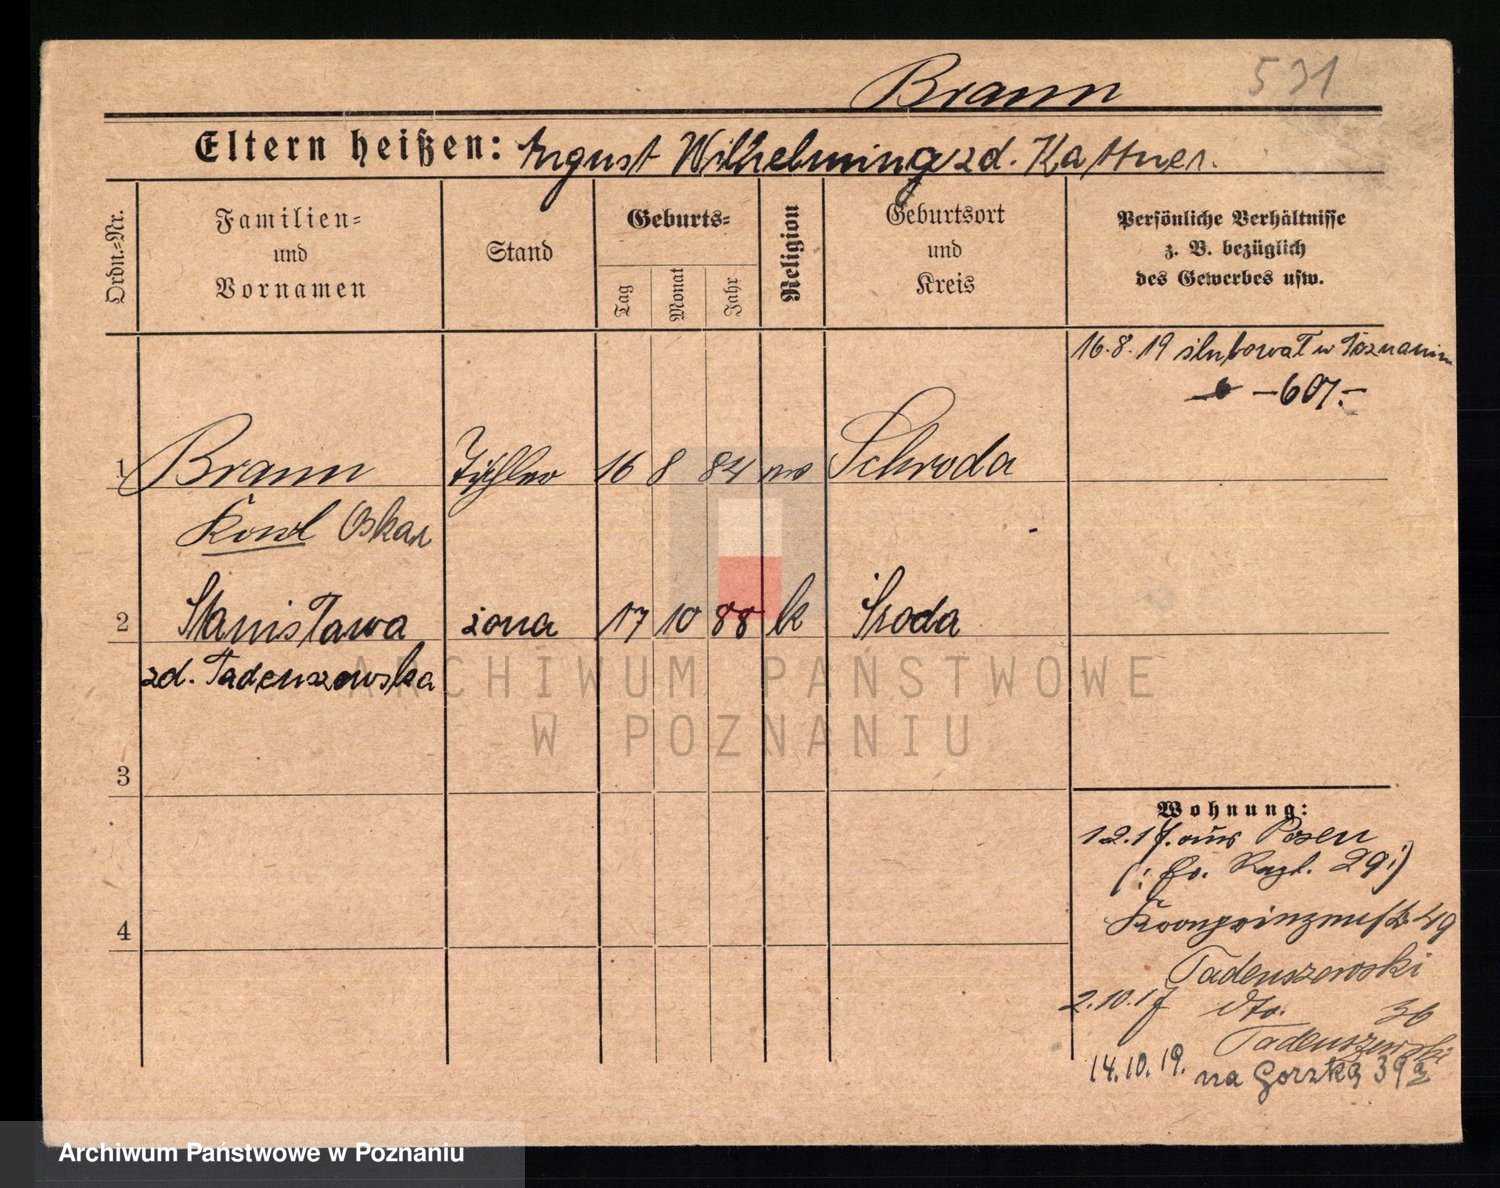 Braun 531
Eltern heißen: August Wilhelmina zd. Kattner.
Ordn.=Nr.
Familien=
und
Vornamen
Stand
Geburts=
Tag
Monat
Jahr
Religion
Geburtsort
und
Kreis
Persönliche Verhältnisse
z. B. bezüglich
des Gewerbes usw.
16.8.19 ślubował w Poznaniu
–607.–
1 Braun Tischler 16 8 84 ev Schroda
Karl Oskar
2 Stanisława żona 17 10 88 k Środa
zd. Tadeuszewska
3
4
Wohnung:
1.2.17. aus Posen
29
Kronprinzenstr. 49
Tadeuszewski
2.10.17 dto. 36
Tadeuszewski
14.10.19. na Gorzką 39a
ARCHIWUM PAŃSTWOWE
W POZNANIU
Archiwum Państwowe w Poznaniu